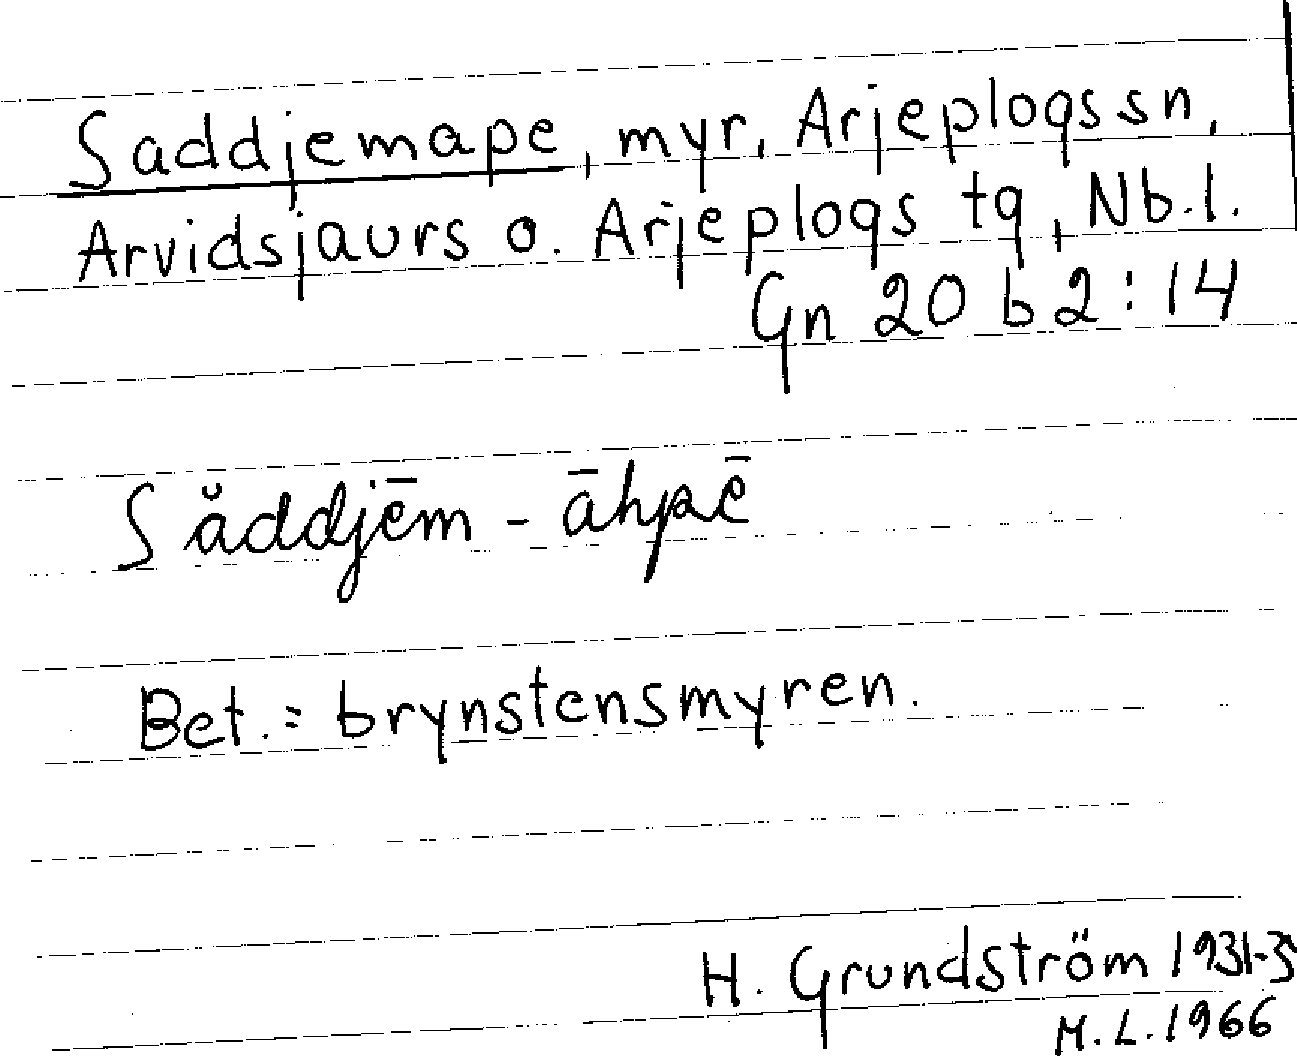 Saddjemape, myr, Arjeplogs sn,
Arvidsjaurs o. Arjeplogs tg, Nb.l.
Gn 20 b 2:14
Såddjēm - āhpē
Bet. = brynstensmyren.
H. Grundström 1931-3
M.L. 1966